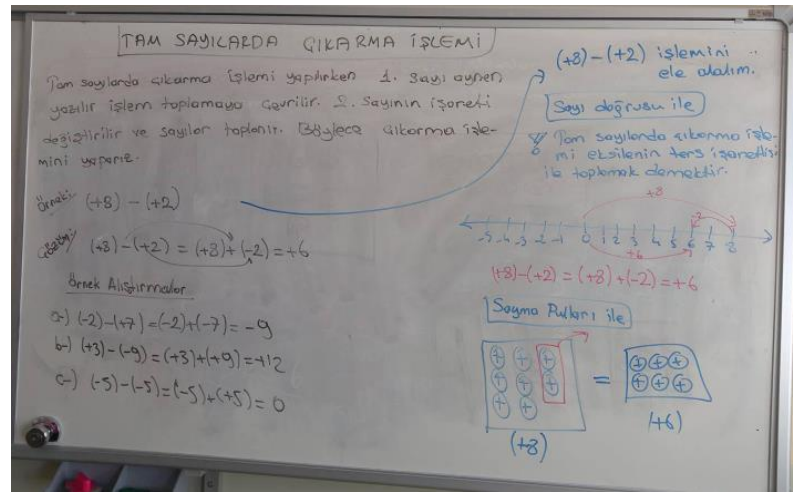 TAM SAYILARDA ÇIKARMA İŞLEMİ
Tam sayılarda çıkarma işlemi yapılırken 1. sayı aynen
yazılır işlem toplamaya çevrilir. 2. Sayının işareti
değiştirilir ve sayılar toplanır. Böylece çıkarma işle-
mini yaparız.
Örnek:
(+8) - (+2)
Çözüm:
(+8)-(+2) = (+8)+(-2) = +6
Örnek Alıştırmalar
a-) (-2)-(+7)=(-2)+(-7)= -9
b-) (+3)-(-9)=(+3)+(+9)=+12
c-) (-5)-(-5)=(-5)+(+5)= 0
(+8)-(+2) işlemini
ele alalım.
Sayı doğrusu ile
Tam sayılarda çıkarma işle-
mi eksilenin ters işaretlisi
ile toplamak demektir.
+8
-2
-5 -4 -3 -2 -1 0 1 2 3 4 5 6 7 8
+6
(+8)-(+2) = (+8)+(-2)=+6
Sayma Pulları ile
+ + +
+ + +
+ +
=
+ + +
+ + +
(+8)
(+6)